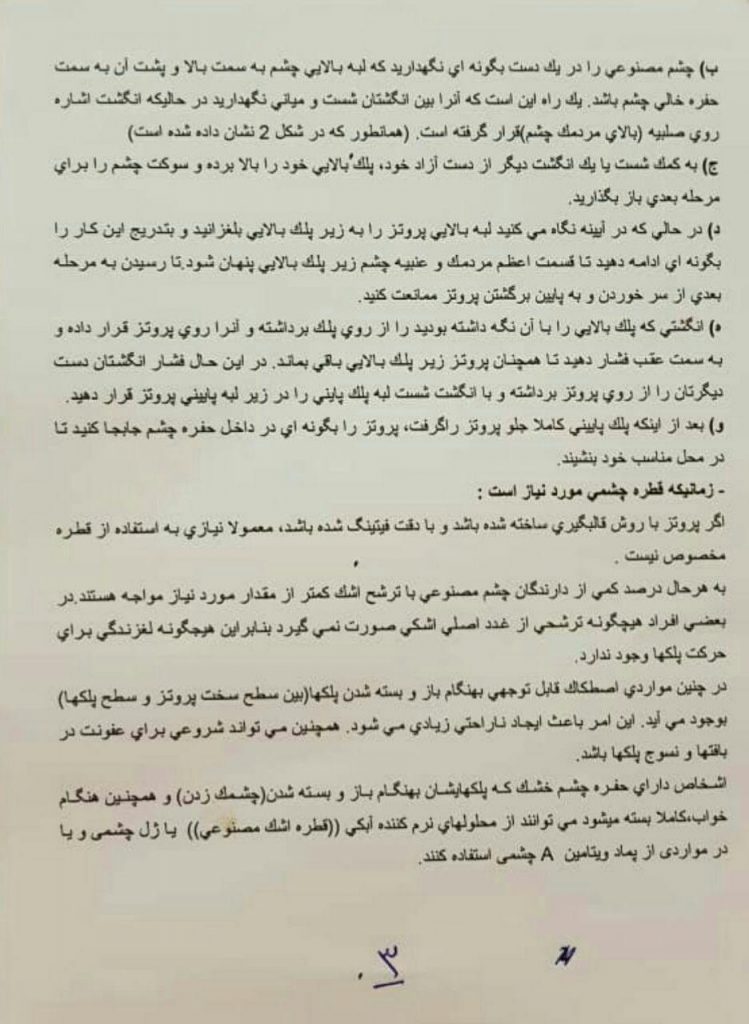 ب) چشم مصنوعي را در يك دست بگونه اي نگهداريد كه لبه بالايي چشم به سمت بالا و پشت آن به سمت
حفره خالي چشم باشد. يك راه اين است كه آنرا بين انگشتان شست و مياني نگهداريد در حاليكه انگشت اشاره
روي صلبيه (بالاي مردمك چشم)قرار گرفته است. (همانطور كه در شكل 2 نشان داده شده است)
ج) به كمك شست يا يك انگشت ديگر از دست آزاد خود، پلك بالايي خود را بالا برده و سوكت چشم را براي
مرحله بعدي باز بگذاريد.
د) در حالي كه در آيينه نگاه مي كنيد لبه بالايي پروتز را به زير پلك بالايي بلغزانيد و بتدريج اين كار را
بگونه اي ادامه دهيد تا قسمت اعظم مردمك و عنبيه چشم زير پلك بالايي پنهان شود.تا رسيدن به مرحله
بعدي از سر خوردن و به پايين برگشتن پروتز ممانعت كنيد.
ه) انگشتي كه پلك بالايي را با آن نگه داشته بوديد را از روي پلك برداشته و آنرا روي پروتز قرار داده و
به سمت عقب فشار دهيد تا همچنان پروتز زير پلك بالايي باقي بماند. در اين حال فشار انگشتان دست
ديگرتان را از روي پروتز برداشته و با انگشت شست لبه پلك پايني را در زير لبه پاييني پروتز قرار دهيد.
و) بعد از اينكه پلك پاييني كاملا جلو پروتز راگرفت، پروتز را بگونه اي در داخل حفره چشم جابجا كنيد تا
در محل مناسب خود بنشيند.
- زمانيكه قطره چشمي مورد نياز است :
اگر پروتز با روش قالبگيري ساخته شده باشد و با دقت فيتينگ شده باشد، معمولا نيازي به استفاده از قطره
مخصوص نيست .
به هرحال درصد كمي از دارندگان چشم مصنوعي با ترشح اشك كمتر از مقدار مورد نياز مواجه هستند.در
بعضي افراد هيچگونه ترشحي از غدد اصلي اشكي صورت نمي گيرد بنابراين هيچگونه لغزندگي براي
حركت پلكها وجود ندارد.
در چنين مواردي اصطكاك قابل توجهي بهنگام باز و بسته شدن پلكها(بين سطح سخت پروتز و سطح پلكها)
بوجود مي آيد. اين امر باعث ايجاد ناراحتي زيادي مي شود. همچنين مي تواند شروعي براي عفونت در
بافتها و نسوج پلكها باشد.
اشخاص داراي حفره چشم خشك كه پلكهايشان بهنگام باز و بسته شدن(چشمك زدن) و همچنين هنگام
خواب،كاملا بسته ميشود مي توانند از محلولهاي نرم كننده آبكي ((قطره اشك مصنوعي)) يا ژل چشمى و يا
در مواردى از پماد ويتامين A چشمى استفاده كنند.
۳